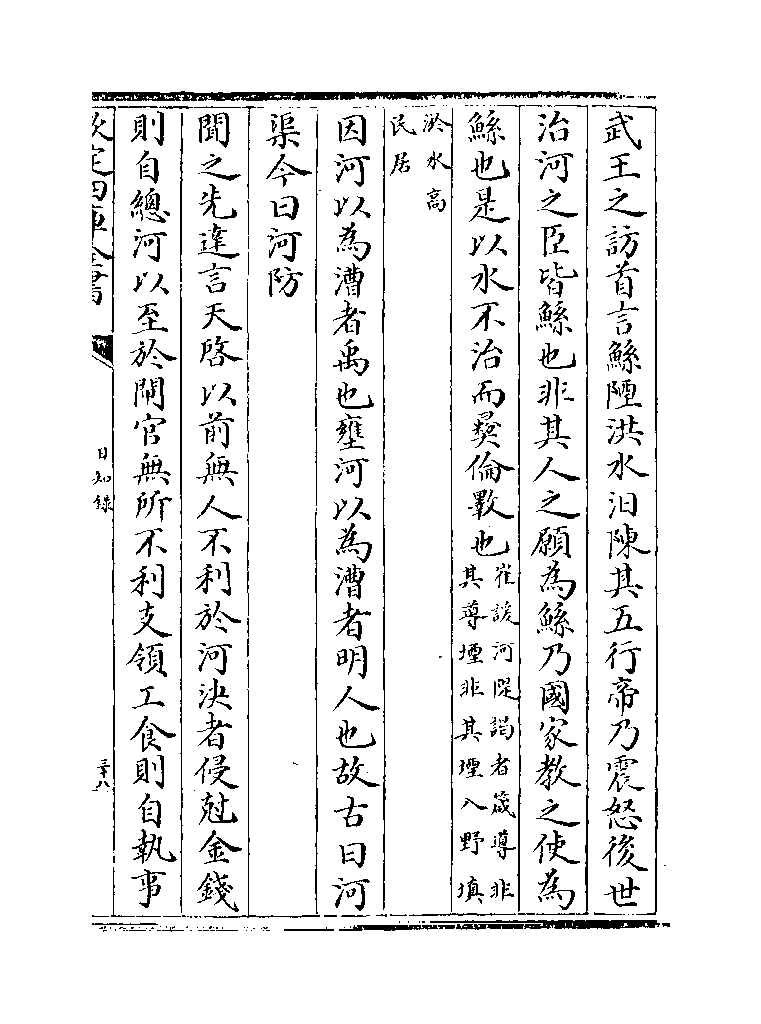 武王之訪首言鯀陻洪水汩陳其五行帝乃震怒後世
治河之臣皆鯀也非其人之願為鯀乃國家教之使為
鯀也是以水不治而彛倫斁也
崔諼河隄謁者箴導非
其導堙非其堙八野填
淤水高
民居
因河以為漕者禹也壅河以為漕者明人也故古曰河
渠今曰河防
聞之先達言天啓以前無人不利於河決者侵尅金錢
則自總河以至於閘官無所不利支領工食則自執事
欽定四庫全書
日知錄
三十八